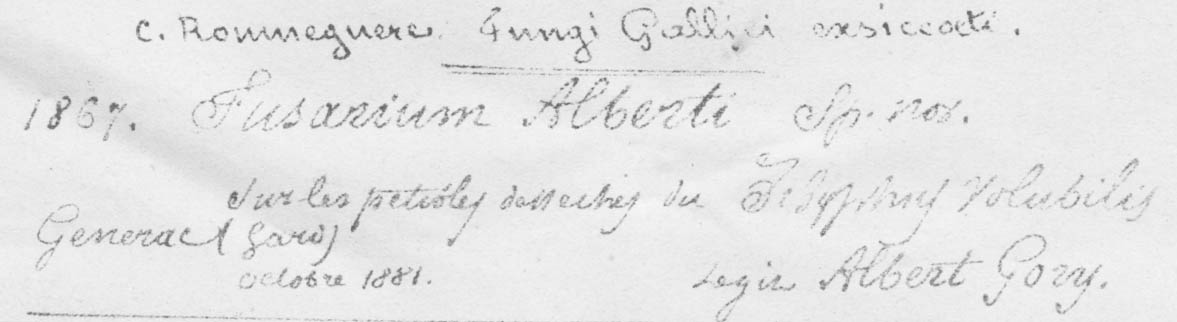 C. Roumeguere. Fungi Gallici exsiccati.
1867. Fusarium Alberti Sp. nov.
Sur les petioles desseches du volubilis
Generac (Gard)
Octobre 1881. Legit Albert Gory.